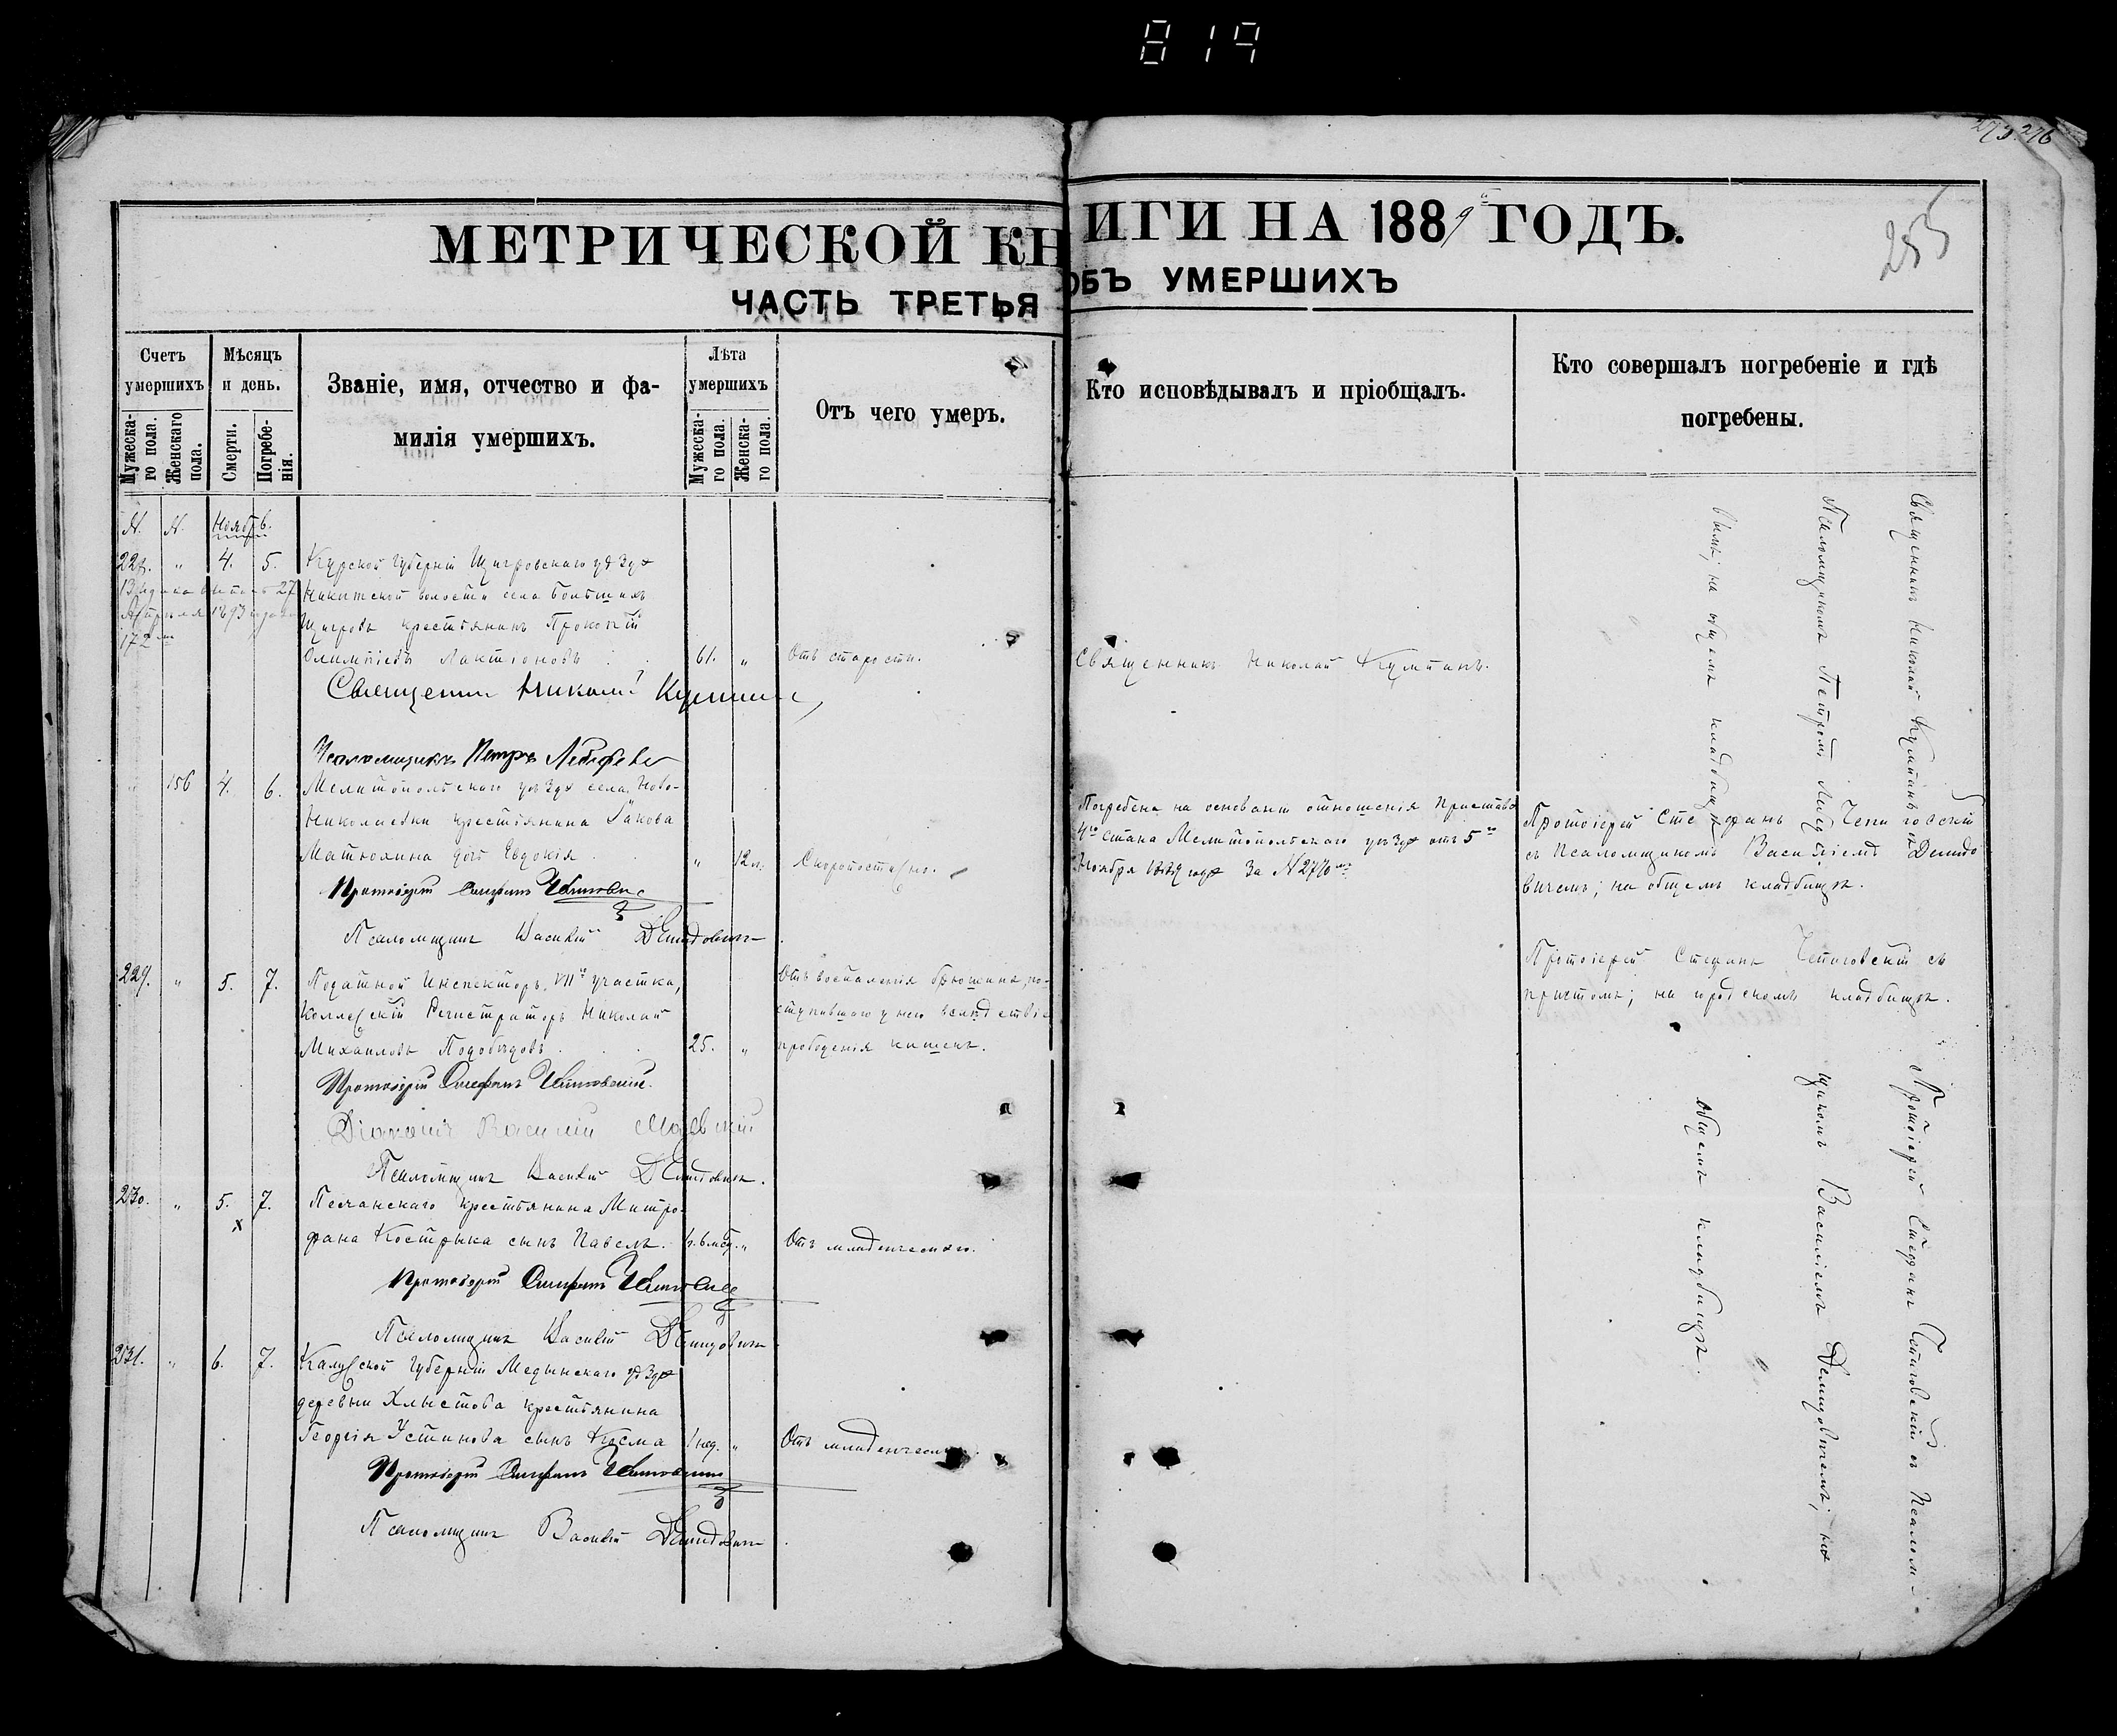 819
273. 276
255
МЕТРИЧЕСКОЙ КНИГИ НА 1889 ГОДЪ.
ЧАСТЬ ТРЕТЬЯ ОБЪ УМЕРШИХЪ
Счетъ умершихъ.
Мужескаго пола.
Женскаго пола.
Мѣсяцъ и день.
Смерти.
Погребенія.
Званіе, имя, отчество и фамилія умершихъ.
Лѣта умершихъ
Мужескаго пола.
Женскаго пола.
Отъ чего умеръ.
Кто исповѣдывалъ и пріобщалъ.
Кто совершалъ погребеніе и гдѣ погребены.
Ноябрь.
228. " 4. 5. Курской губерніи Щигровскаго уѣзда
Никитской волости села Большихъ
Щигровъ крестьянинъ Прокопій
Олимпіевъ Лактіоновъ 61. " Отъ старости. Священникъ Николай Кумпанъ.
27
Апрѣля 1893 года
172
Священникъ Николай Кумпанъ
Псаломщикъ Петръ
Священникъ Николай Кумпанъ съ
Псаломщикомъ Петромъ
вымъ; на общемъ кладбищѣ.
" 156 4. 6. Мелитопольскаго уѣзда села Ново-
Николаевки крестьянина Іакова
Матюхина дочь Евдокія " 12 л. Скоропостижно.
Погребена на основаніи отношенія Пристава
4го стана Мелитопольскаго уѣзда отъ 5го
Ноября 1889 года за №
Протоіерей Стефанъ Чепиговскій
съ Псаломщикомъ Василіемъ Демидо
вичемъ; на общемъ кладбищѣ.
Протоіерей Стефанъ Чепиговскій
Псаломщикъ Василій Демидовичъ
229. " 5. 7. Податной Инспекторъ VIIго участка,
Коллежскій Регистраторъ Николай
Михаиловъ Подобѣдовъ 25. "
Отъ воспаленія брюшины, по-
ступившаго у него вслѣдствіе
прободенія кишекъ.
Протоіерей Стефанъ Чепиговскій съ
причтомъ; на городскомъ кладбищѣ.
Протоіерей Стефанъ Чепиговскій.
Діаконъ Василій
Псаломщикъ Василій Демидовичъ.
230. " 5. 7. Песчанскаго крестьянина Митро-
фана Кострыка сынъ Павелъ. " Отъ младенческаго.
Протоіерей Стефанъ Чепиговскій
Псаломщикъ Василій Демидовичъ
231. " 6. 7. Калужской губерніи Медынскаго уѣзда
деревни Хлыстова крестьянина
Георгія Устинова сынъ Косма 1 нед. " Отъ младенческаго.
Протоіерей Стефанъ Чепиговскій
Псаломщикъ Василій Демидовичъ
Протоіерей Стефанъ Чепиговскій съ Псалом-
щикомъ Василіемъ Демидовичемъ; на
общемъ кладбищѣ.